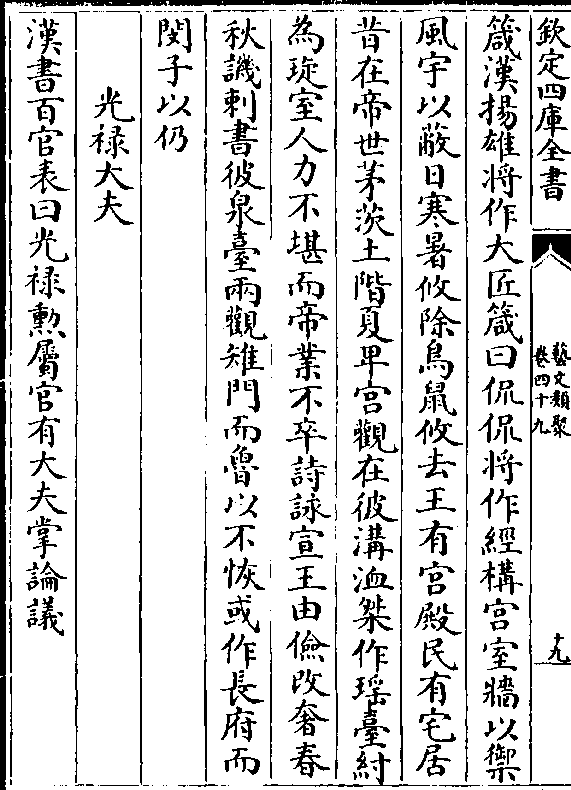 欽定四庫全書
藝文類聚
卷四十九
十九
箴漢揚雄將作大匠箴曰侃侃將作經構宫室牆以禦
風宇以蔽日寒暑攸除鳥鼠攸去王有宫殿民有宅居
昔在帝世茅茨土階夏卑宫觀在彼溝洫桀作瑶臺紂
為琁室人力不堪而帝業不卒詩詠宣王由儉改奢春
秋譏刺書彼泉臺兩觀雉門而魯以不恢或作長府而
閔子以仍
光禄大夫
漢書百官表曰光禄勲屬官有大夫掌論議